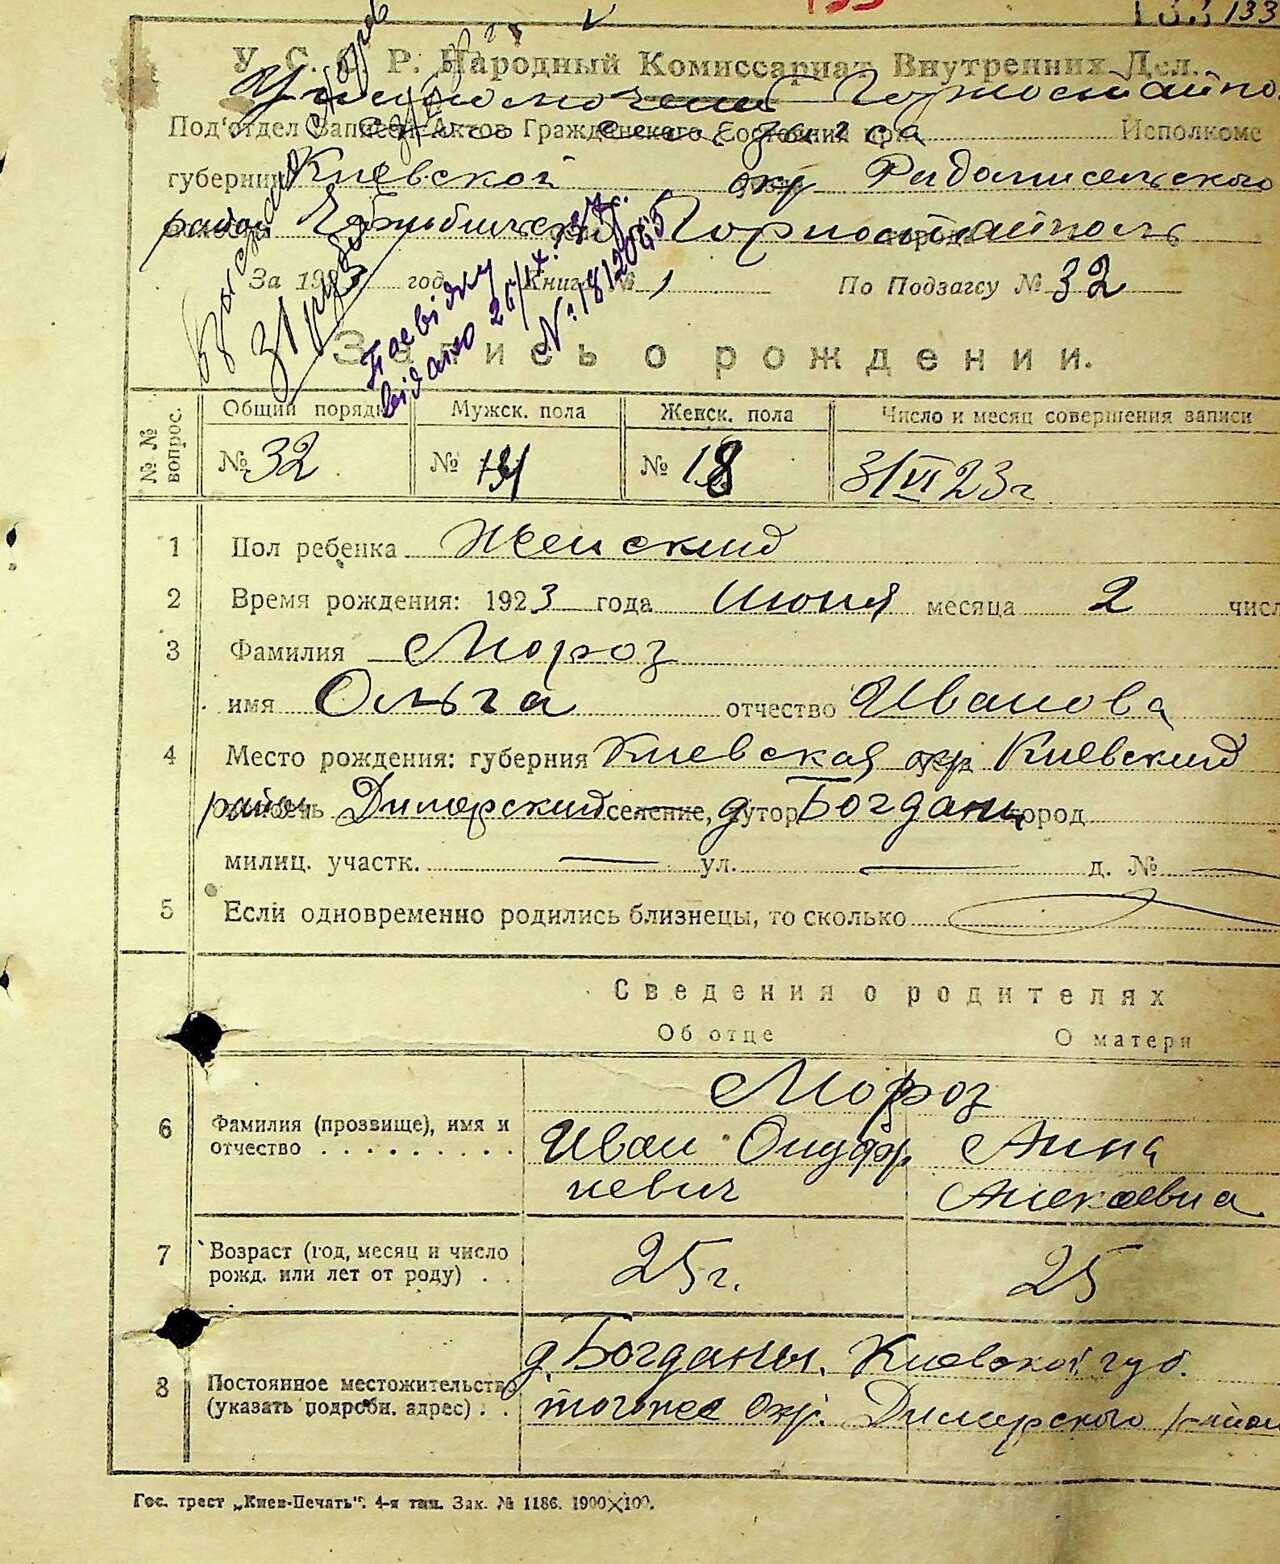 133 133 133
У. С. С. Р. Народный Комиссариат Внутренних Дел.
Под'отдел Записей Актов Гражданского Состояния при Исполкоме
губернии Киевской окр Радомисельского
район Горностайполь
За 1923 год. Книга № 1 По Подзагсу № 32
Посвідку
видано 26/IX. 37 г.
№ 1812043
Запись о рождении.
№ № вопрос. Общий порядк Мужск. пола Женск. пола Число и месяц совершения записи
№ 32 № 14 № 18 31 VI 23 г
1 Пол ребенка Женский
2 Время рождения: 1923 года Июня месяца 2 числ
3 Фамилия Мороз
имя Ольга отчество Иванова
4 Место рождения: губерния Киевская окр Киевский
район Димерский селение, хутор д Богданы город
милиц. участк. — ул. — д. № —
5 Если одновременно родились близнецы, то сколько
Сведения о родителях
Об отце О матери
Мороз
6 Фамилия (прозвище), имя и отчество . . . . . . . . . Иван Онуфр Анна
невич Алексевна
7 Возраст (год, месяц и число рожд. или лет от роду) . . 25 г. 25
8 Постоянное местожительство (указать подробн. адрес) . . д. Богданы. Киевской губ.
тогоже окр. Димерского район
Гос. трест „Киев-Печать". 4-я тип. Зак. № 1186. 1900×100.